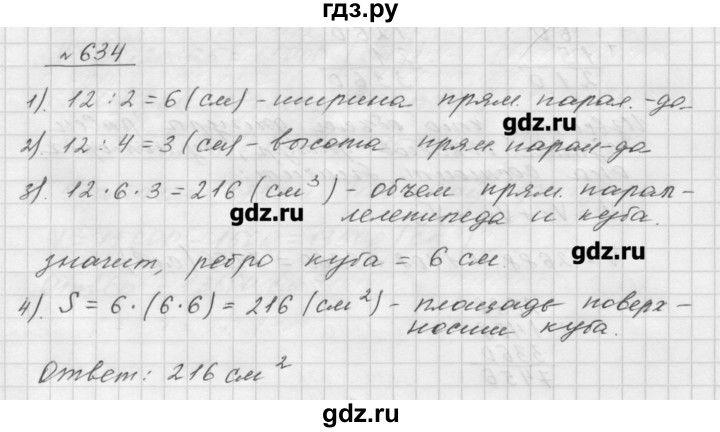 гдз.ру
№ 634
1). 12 : 2 = 6 (см) - ширина прям. парал.-да.
gdz.ru
2). 12 : 4 = 3 (см) - высота прям. парал-да
3). 12 · 6 · 3 = 216 (см³) - объем прям. парал-
лелепипеда и куба.
gdz.ru
gdz.ru
значит, ребро куба = 6 см.
4). S = 6 · (6 · 6) = 216 (см²) - площадь поверх-
ности куба.
Ответ: 216 см²
gdz.ru